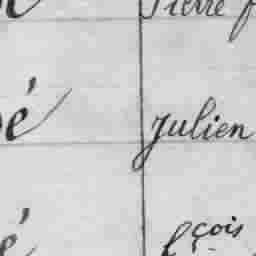 Pierre
é Julien
é fçois